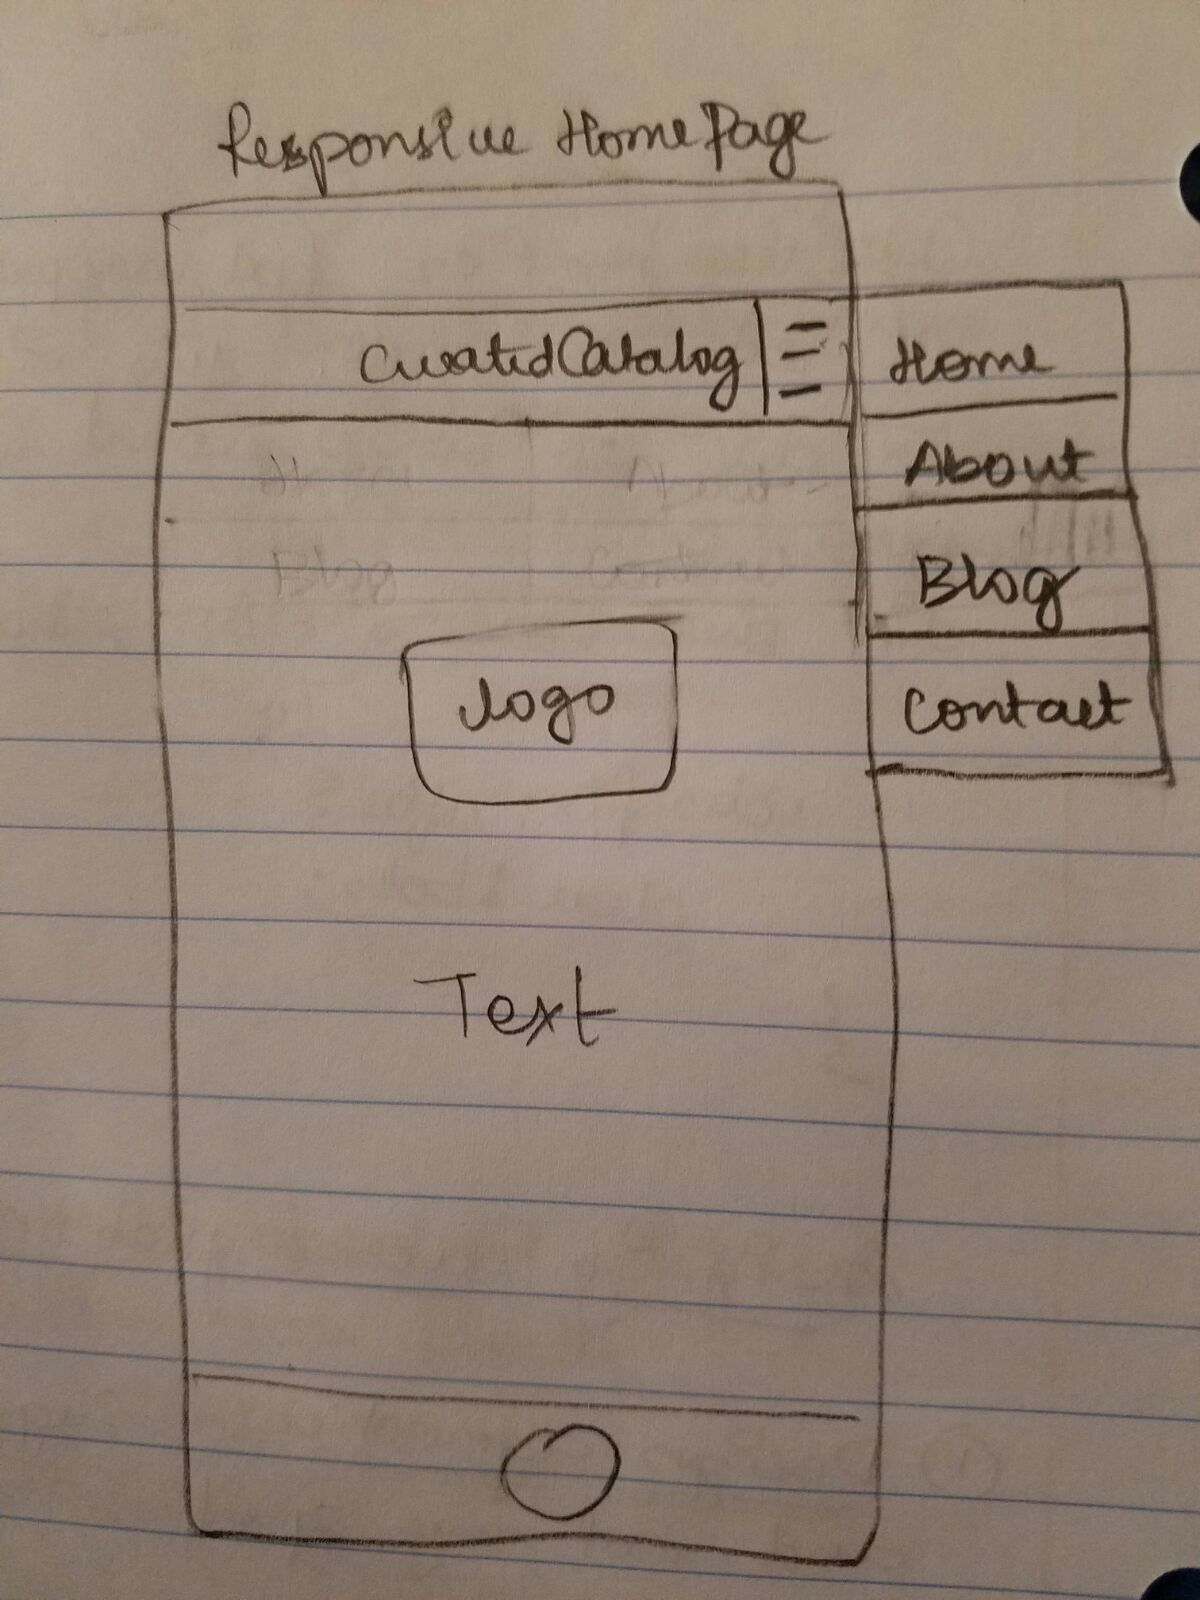 Responsive HomePage
CuratedCatalog
Home
About
Blog
Contact
logo
Text